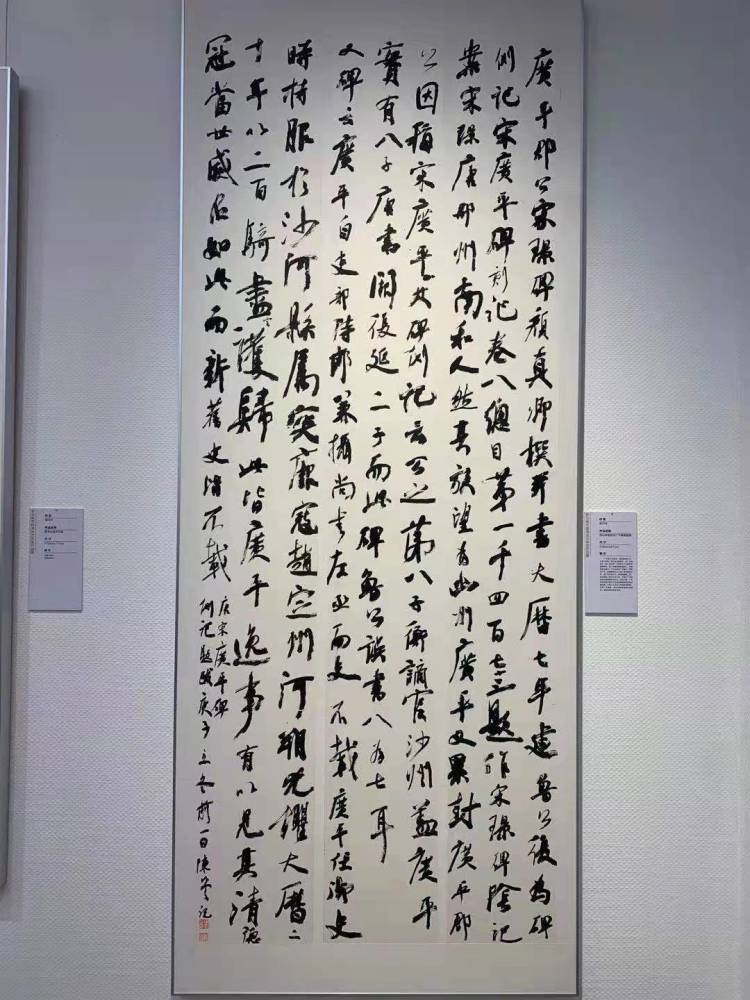 廣平郡公宋璟碑顏真卿撰并書大曆七年建魯公後為碑
側記宋廣平碑側記卷八總目第一千四百七十三題作宋璟碑陰記
宋璟唐邢州南和人然其族望為幽州廣平又累封廣平郡
公因稱宋廣平其碑側記云公之第八子衡謫官沙州蓋廣平
實有八子唐書闕後延二子而此碑魯公誤書八為七耳
又碑云廣平自吏部侍郎兼攝尚書左丞而史不載廣平任御史
時持服於沙河縣屬突厥寇趙定州河朔兇懼大曆二
十年以二百騎盡護歸此皆廣平逸事有以見其清德
冠當世威名如此而新舊史皆不載
唐宋廣平碑
側記題跋庚子立冬前一日陳